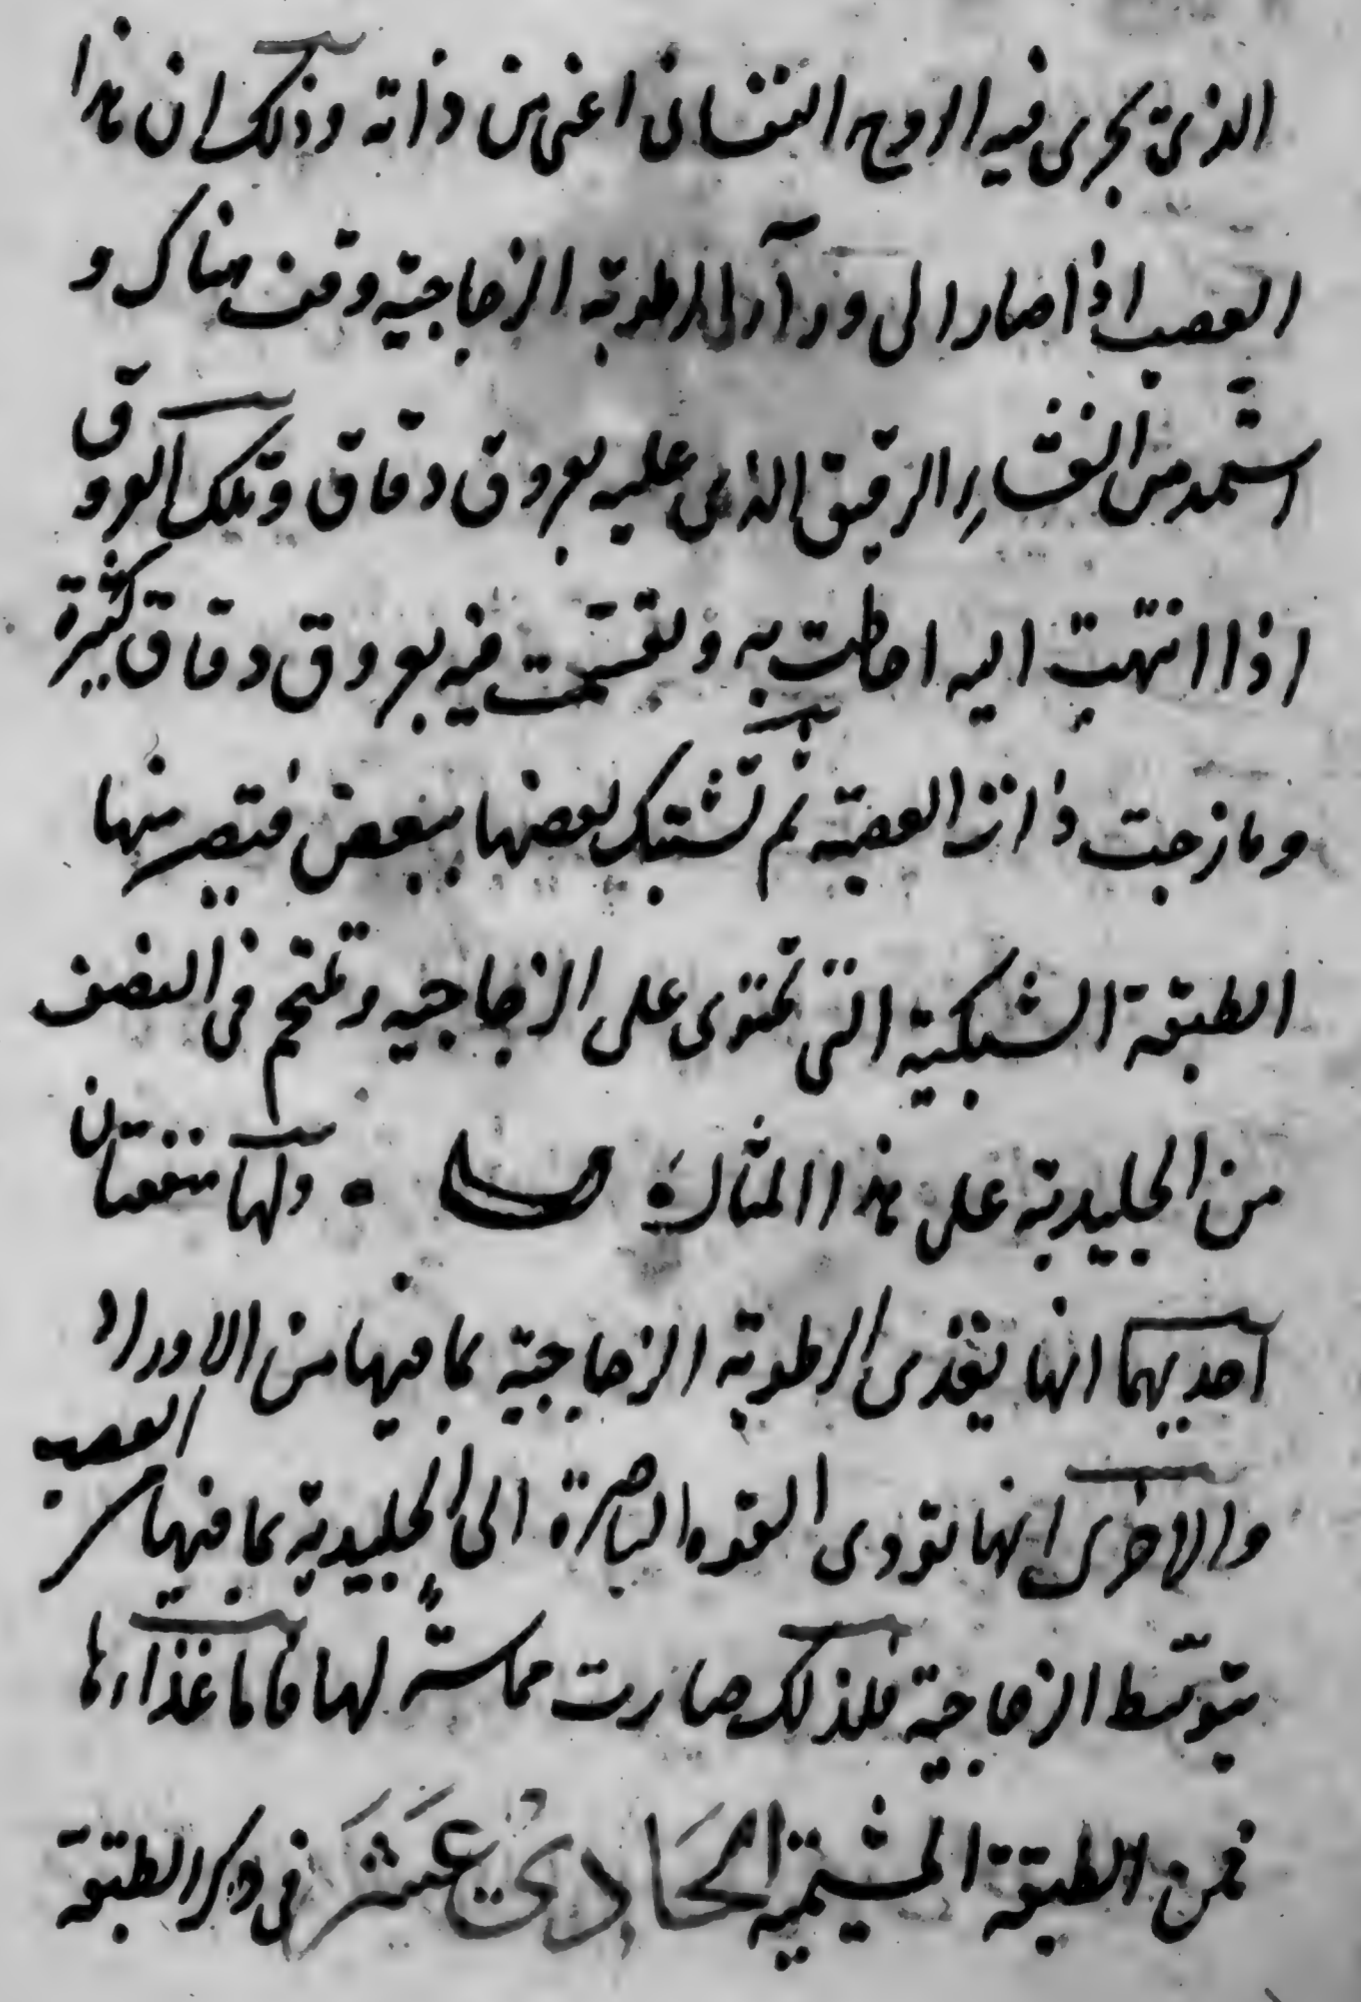 الذى يجرى فيه الروح النفسانى اعنى من ذاته وذلك ان هذا
العصب اذا صار الى ورآء الرطوبة الزجاجية وقف هناك و
استمد من الغشاء الرقيق الذى عليه بعروق دقاق وتلك العروق
اذا انتهت اليه احاطت به وتقسمت فيه بعروق دقاق كثيرة
ومازجت ذات العصبة ثم تشتبك بعضها ببعض فتصير منها
الطبقة الشبكية التى تحتوى على الزجاجيه وتلتحم فى النصف
من الجليدية على هذا المثال ولها منفعتان
احديهما انها تغذى الرطوبة الزجاجية بما فيها من الاوراد
والاخرى انها تؤدى القوه الباصرة الى الجليدية بما فيها من العصب
بتوسّط الزجاجية فلذلك صارت مماسّة لها فاما غذاءها
فمن الطبقة المشيمية الحَادىْ عَشَرَ فى ذكر الطبقة